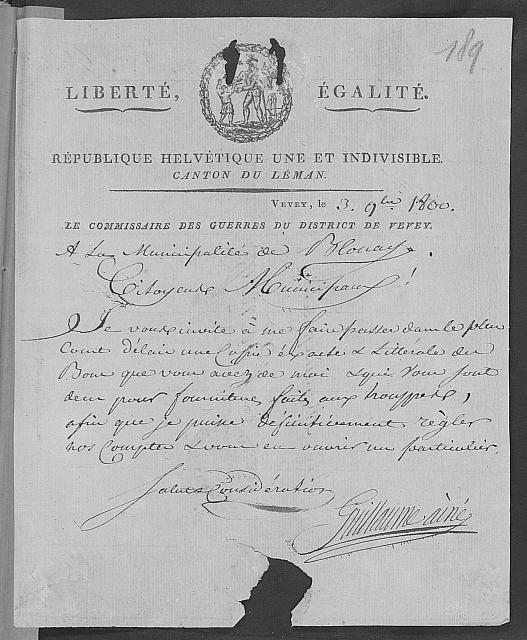 189
LIBERTÉ, ÉGALITÉ.
RÉPUBLIQUE HELVÉTIQUE UNE ET INDIVISIBLE.
CANTON DU LÉMAN.
VEVEY, le 3. 9bre 1800.
LE COMMISSAIRE DES GUERRES DU DISTRICT DE VEVEY.
A La Municipalité de Blonay.
Citoyens Municipaux!
Je vous invite à me faire passer dans le plus
Court délai une Copie éxacte & Littérale des
Bons que vous avez de moi & qui Vous sont
dus pour fournitures faites aux trouppes,
afin que je puisse définitivement règler
nos Comptes & vous en ouvrir un particulier.
Salut & Considération
Guillaume ainé